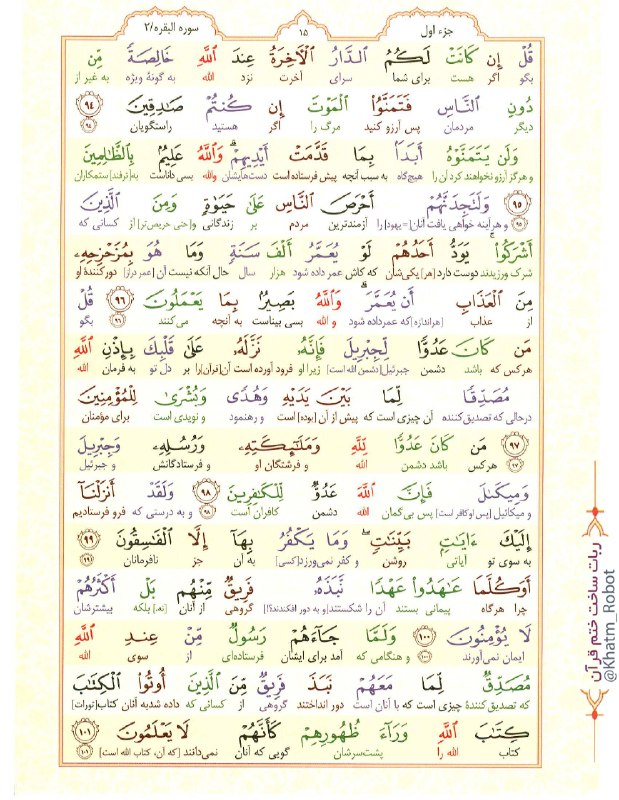 جزء اول ۱۵ سوره البقره/۲
قُلْ إِن كَانَتْ لَكُمُ الدَّارُ الْآخِرَةُ عِندَ اللَّهِ خَالِصَةً مِّن
بگو اگر هست برای شما سرای آخرت نزد الله به گونهٔ ویژه به غیر از
دُونِ النَّاسِ فَتَمَنَّوُا الْمَوْتَ إِن كُنتُمْ صَادِقِينَ ۹۴
دیگر مردمان پس آرزو کنید مرگ را اگر هستید راستگویان ۹۴
وَلَن يَتَمَنَّوْهُ أَبَدًا بِمَا قَدَّمَتْ أَيْدِيهِمْ ۗ وَاللَّهُ عَلِيمٌ بِالظَّالِمِينَ
و هرگز آرزو نخواهند کرد آن را هیچ‌گاه به سبب آنچه پیش فرستاده است دست‌هایشان والله بسی داناست [به‌ترفند] ستمکاران
۹۵ وَلَتَجِدَنَّهُمْ أَحْرَصَ النَّاسِ عَلَىٰ حَيَوٰةٍ وَمِنَ الَّذِينَ
۹۵ و هرآینه خواهی یافت آنان [=یهود] را آزمندترین مردم بر زندگانی و [حتی حریص‌تر] از کسانی که
أَشْرَكُوا ۚ يَوَدُّ أَحَدُهُمْ لَوْ يُعَمَّرُ أَلْفَ سَنَةٍ وَمَا هُوَ بِمُزَحْزِحِهِ
شرک ورزیدند دوست دارد [هر] یکی‌شان که کاش عمر داده شود هزار سال حال آنکه نیست آن [عمر دراز] دورکنندهٔ او
مِنَ الْعَذَابِ أَن يُعَمَّرَ ۗ وَاللَّهُ بَصِيرٌ بِمَا يَعْمَلُونَ ۹۶ قُلْ
از عذاب [هراندازه] که عمرداده شود و الله بسی بیناست به آنچه می‌کنند ۹۶ بگو
مَن كَانَ عَدُوًّا لِّجِبْرِيلَ فَإِنَّهُ نَزَّلَهُ عَلَىٰ قَلْبِكَ بِإِذْنِ اللَّهِ
هرکس که باشد دشمن جبرئیل [دشمن الله است] زیرا او فرود آورده است آن [قرآن] را بر دل تو به فرمان الله
مُصَدِّقًا لِّمَا بَيْنَ يَدَيْهِ وَهُدًى وَبُشْرَىٰ لِلْمُؤْمِنِينَ
درحالی که تصدیق‌کننده آن چیزی است که پیش از آن [بوده] است و رهنمود و نویدی است برای مؤمنان
۹۷ مَن كَانَ عَدُوًّا لِّلَّهِ وَمَلَٰئِكَتِهِ وَرُسُلِهِ وَجِبْرِيلَ
۹۷ هرکس باشد دشمن الله و فرشتگان او و فرستادگانش و جبرئیل
وَمِيكَىٰلَ فَإِنَّ اللَّهَ عَدُوٌّ لِّلْكَٰفِرِينَ ۹۸ وَلَقَدْ أَنزَلْنَا
و میکائیل [پس اوکافر است] پس بی‌گمان الله دشمن کافران است ۹۸ و به درستی که فرو فرستادیم
إِلَيْكَ ءَايَٰتٍ بَيِّنَٰتٍ ۖ وَمَا يَكْفُرُ بِهَا إِلَّا الْفَاسِقُونَ ۹۹
به سوی تو آیاتی روشن و کفر نمی‌ورزد [کسی] به آن جز نافرمانان ۹۹
أَوَكُلَّمَا عَٰهَدُوا عَهْدًا نَّبَذَهُ فَرِيقٌ مِّنْهُم بَلْ أَكْثَرُهُمْ
چرا هرگاه پیمانی بستند آن را شکستند [و به دور افکندند؟!] گروهی از آنان [نه] بلکه بیشترشان
لَا يُؤْمِنُونَ ۱۰۰ وَلَمَّا جَاءَهُمْ رَسُولٌ مِّنْ عِندِ اللَّهِ
ایمان نمی‌آورند ۱۰۰ و هنگامی که آمد برای ایشان فرستاده‌ای از سوی الله
مُصَدِّقٌ لِّمَا مَعَهُمْ نَبَذَ فَرِيقٌ مِّنَ الَّذِينَ أُوتُوا الْكِتَٰبَ
که تصدیق کنندهٔ چیزی است که با آنان است دور انداختند گروهی از کسانی که داده شدبه آنان کتاب [تورات]
كِتَٰبَ اللَّهِ وَرَاءَ ظُهُورِهِمْ كَأَنَّهُمْ لَا يَعْلَمُونَ ۱۰۱
کتاب الله را پشت‌سرشان گویی که آنان نمی‌دانند [که آن، کتاب الله است] ۱۰۱
ربات ساخت ختم قرآن
@Khatm_Robot